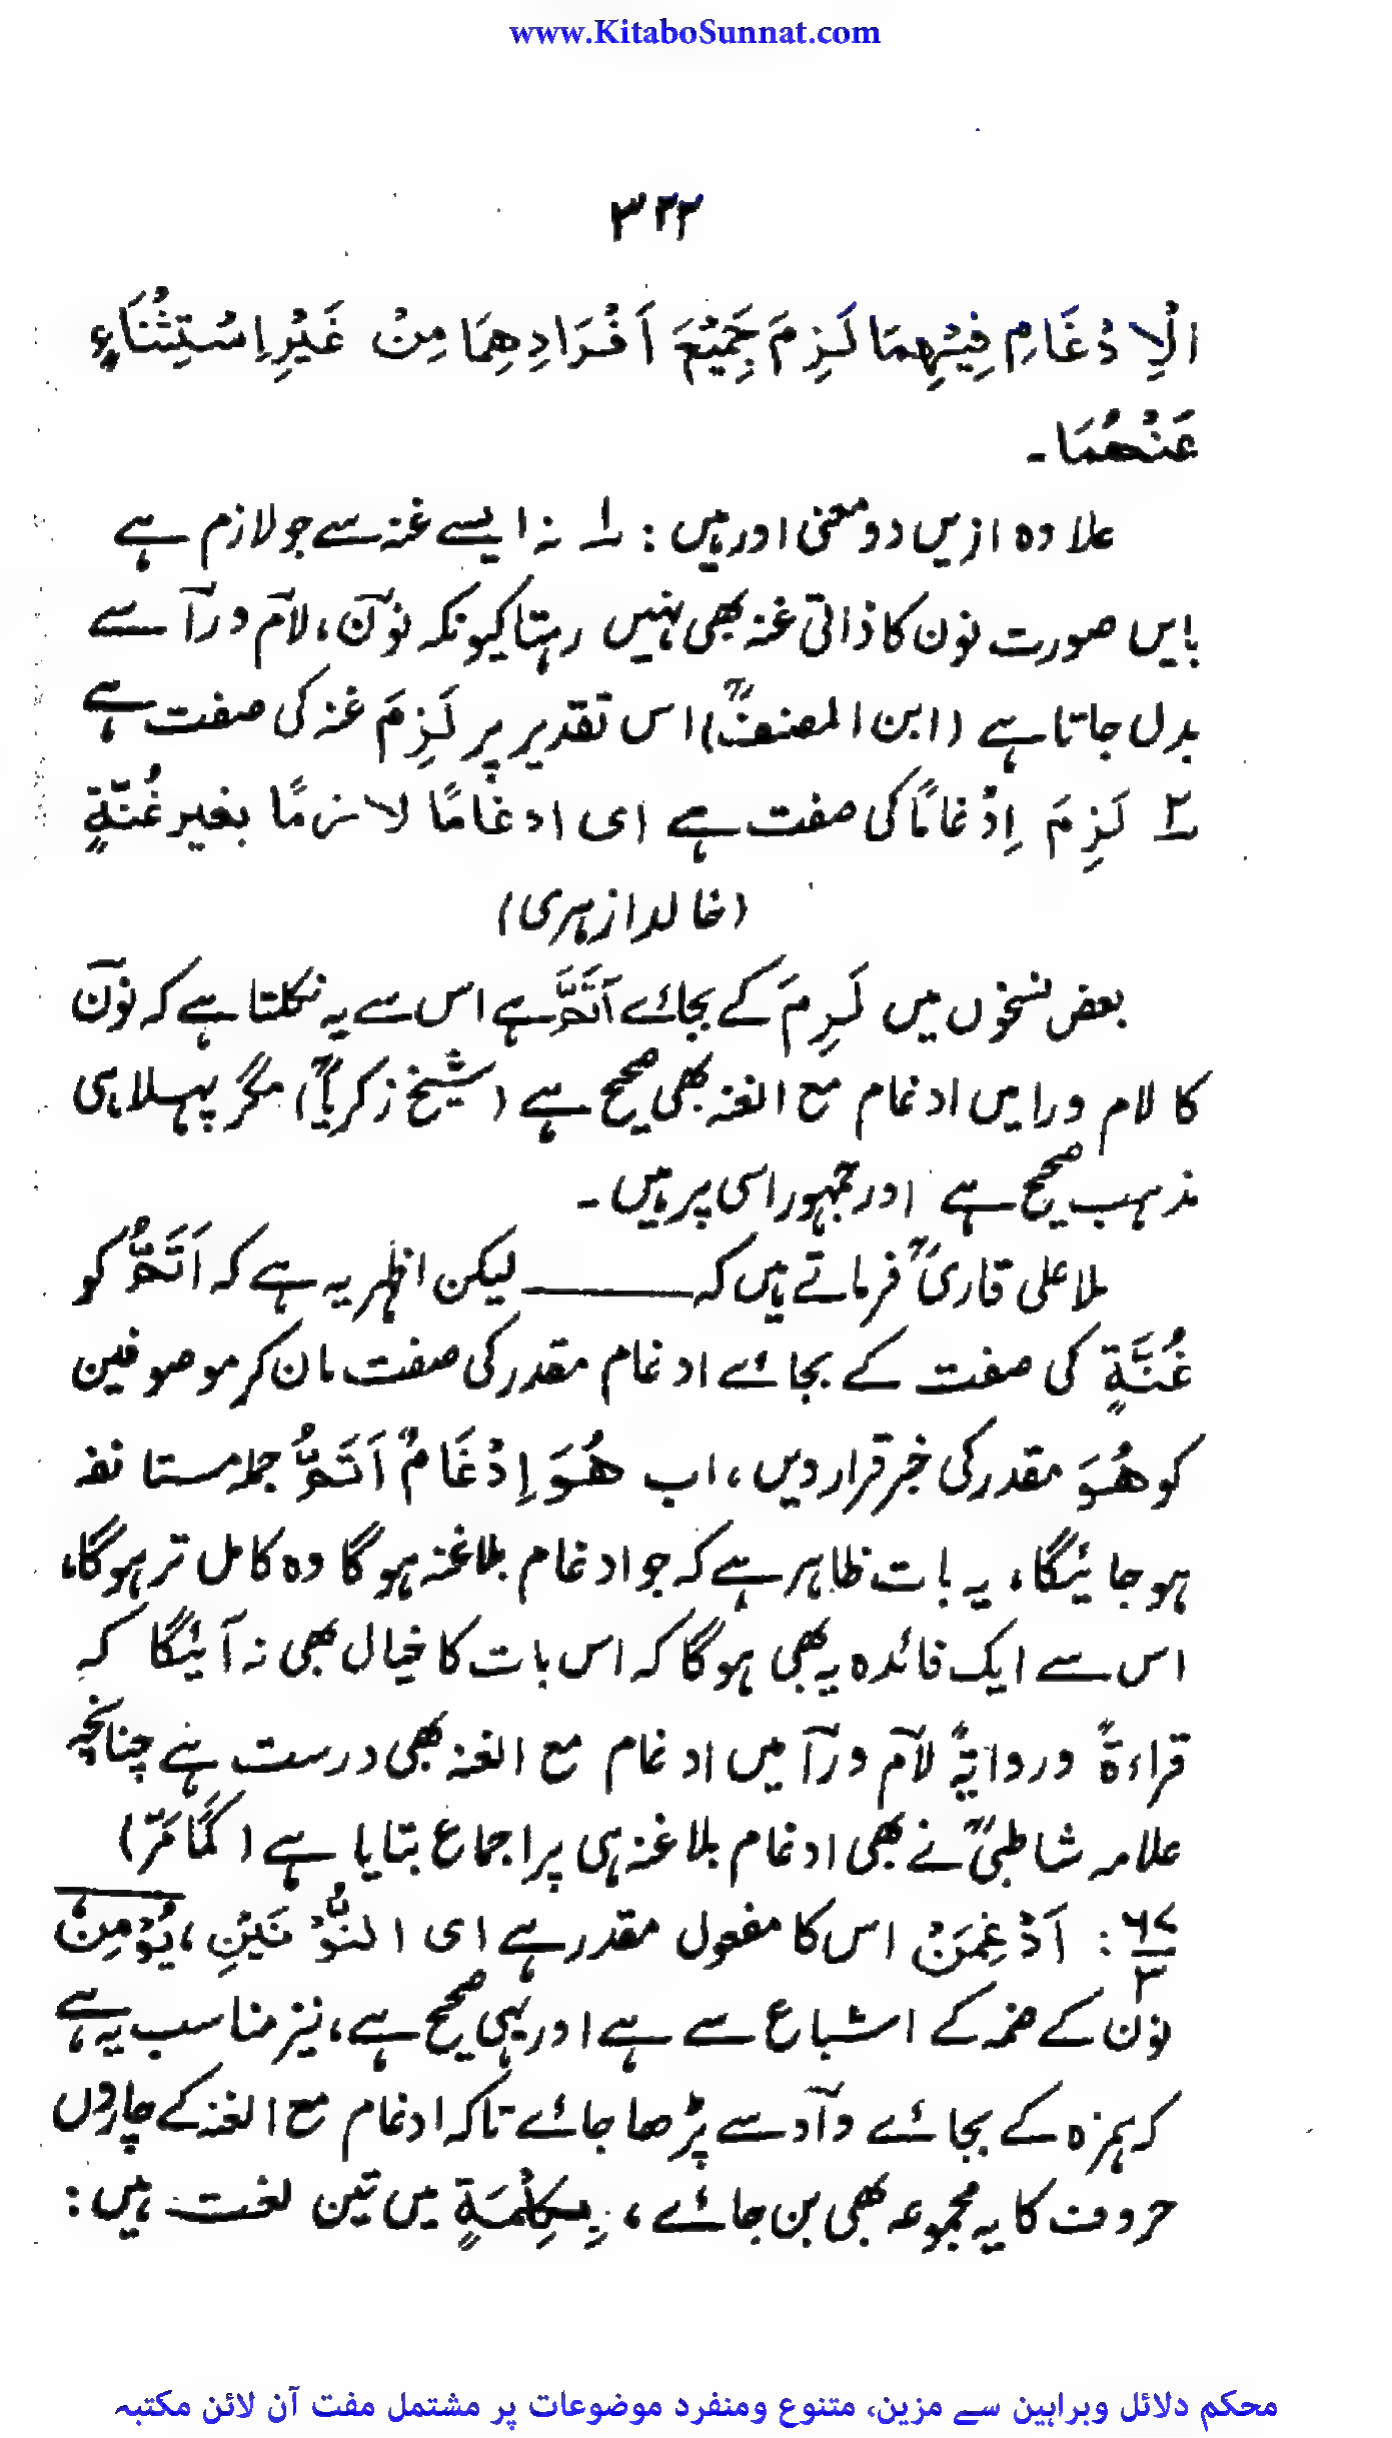 www.KitaboSunnat.com
۳۲۲
الْاِدْغَامِ فِيْهِمَا لَزِمَ جَمِيْعَ اَفْرَادِهِمَا مِنْ غَيْرِ اِسْتِثْنَاءٍ
عَنْهُمَا۔
علاوہ ازیں دو معنی اور ہیں : ۱؎ نہ ایسے غنہ سے جو لازم ہے
بایں صورت نون کا ذاتی غنہ بھی نہیں رہتا کیونکہ نوؔن، لاؔم و راؔ سے
بدل جاتا ہے (ابن المصنفؒ) اس تقدیر پر لَزِمَ غنہ کی صفت ہے
۲؎ لَزِمَ اِدْغَامًا کی صفت ہے ای ادغامًا لازمًا بغیر غُنَّةٍ
(خالد ازہری)
بعض نسخوں میں لَزِمَ کے بجائے اَتَمَّ ہے اس سے یہ نکلتا ہے کہ نوؔن
کا لام ورا میں ادغام مع الغنہ بھی صحیح ہے (شیخ زکریاؒ) مگر پہلا ہی
مذہب صحیح ہے اور جمہور اسی پر ہیں۔
ملا علی قاریؒ فرماتے ہیں کہ ـــــــ لیکن اظہر یہ ہے کہ اَتَمُّ کو
غُنَّةٍ کی صفت کے بجائے ادغام مقدر کی صفت مان کر موصوفین
کو هُوَ مقدر کی خبر قرار دیں، اب هُوَ اِدْغَامٌ اَتَمُّ جملہ مستانفہ
ہو جائیگا، یہ بات ظاہر ہے کہ جو ادغام بلاغنہ ہو گا وہ کامل تر ہوگا،
اس سے ایک فائدہ یہ بھی ہوگا کہ اس بات کا خیال بھی نہ آئیگا کہ
قراءۃً وروایۃً لاؔم وراؔ میں ادغام مع الغنہ بھی درست ہے چنانچہ
علامہ شاطبیؒ نے بھی ادغام بلاغنہ ہی پر اجماع بتایا ہے (کَمَا مَرَّ)
۶۷/۳ : اَدْغِمَنْ اس کا مفعول مقدر ہے ای النُّوْنَيْنِ، يُوْمِنُ
نون کے ضمہ کے اشباع سے ہے اور یہی صحیح ہے، نیز مناسب یہ ہے
کہ ہمزہ کے بجائے واؔو سے پڑھا جائے تاکہ ادغام مع الغنہ کے چاروں
حروف کا یہ مجموعہ بھی بن جائے، بِكِلْمَةٍ میں تین لغت ہیں :
محکم دلائل وبراہین سے مزین، متنوع ومنفرد موضوعات پر مشتمل مفت آن لائن مکتبہ